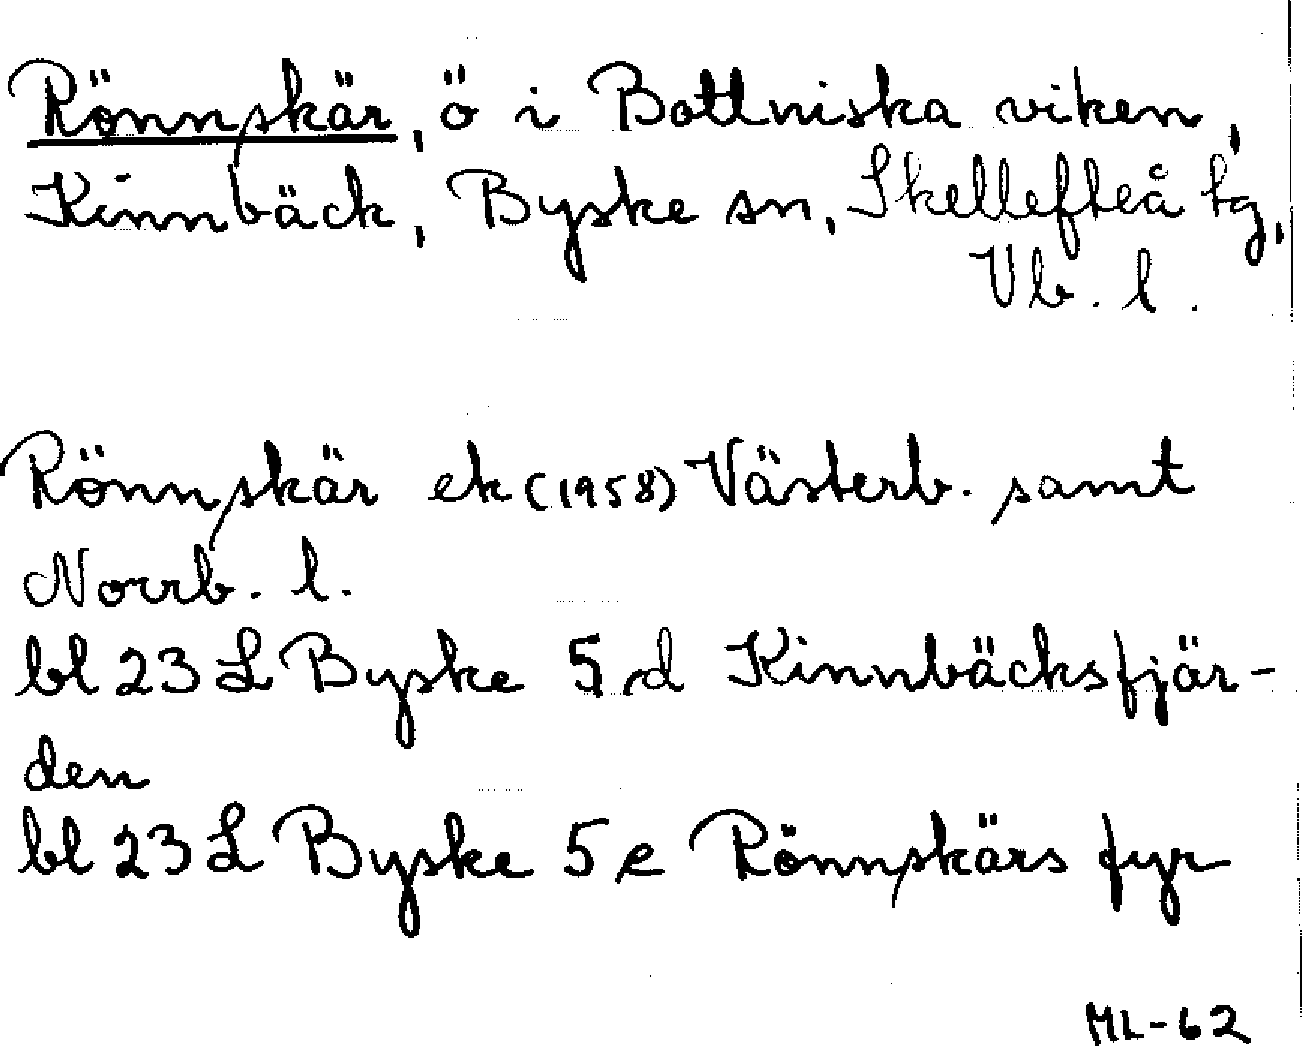 Rönnskär, ö i Bottniska viken,
Kinnbäck, Byske sn, Skellefteå tg,
Vb. l.
Rönnskär ek (1958) Västerb. samt
Norrb. l.
bl 23 L Byske 5 d Kinnbäcksfjär-
den
bl 23 L Byske 5 e Rönnskärs fyr
ML-62